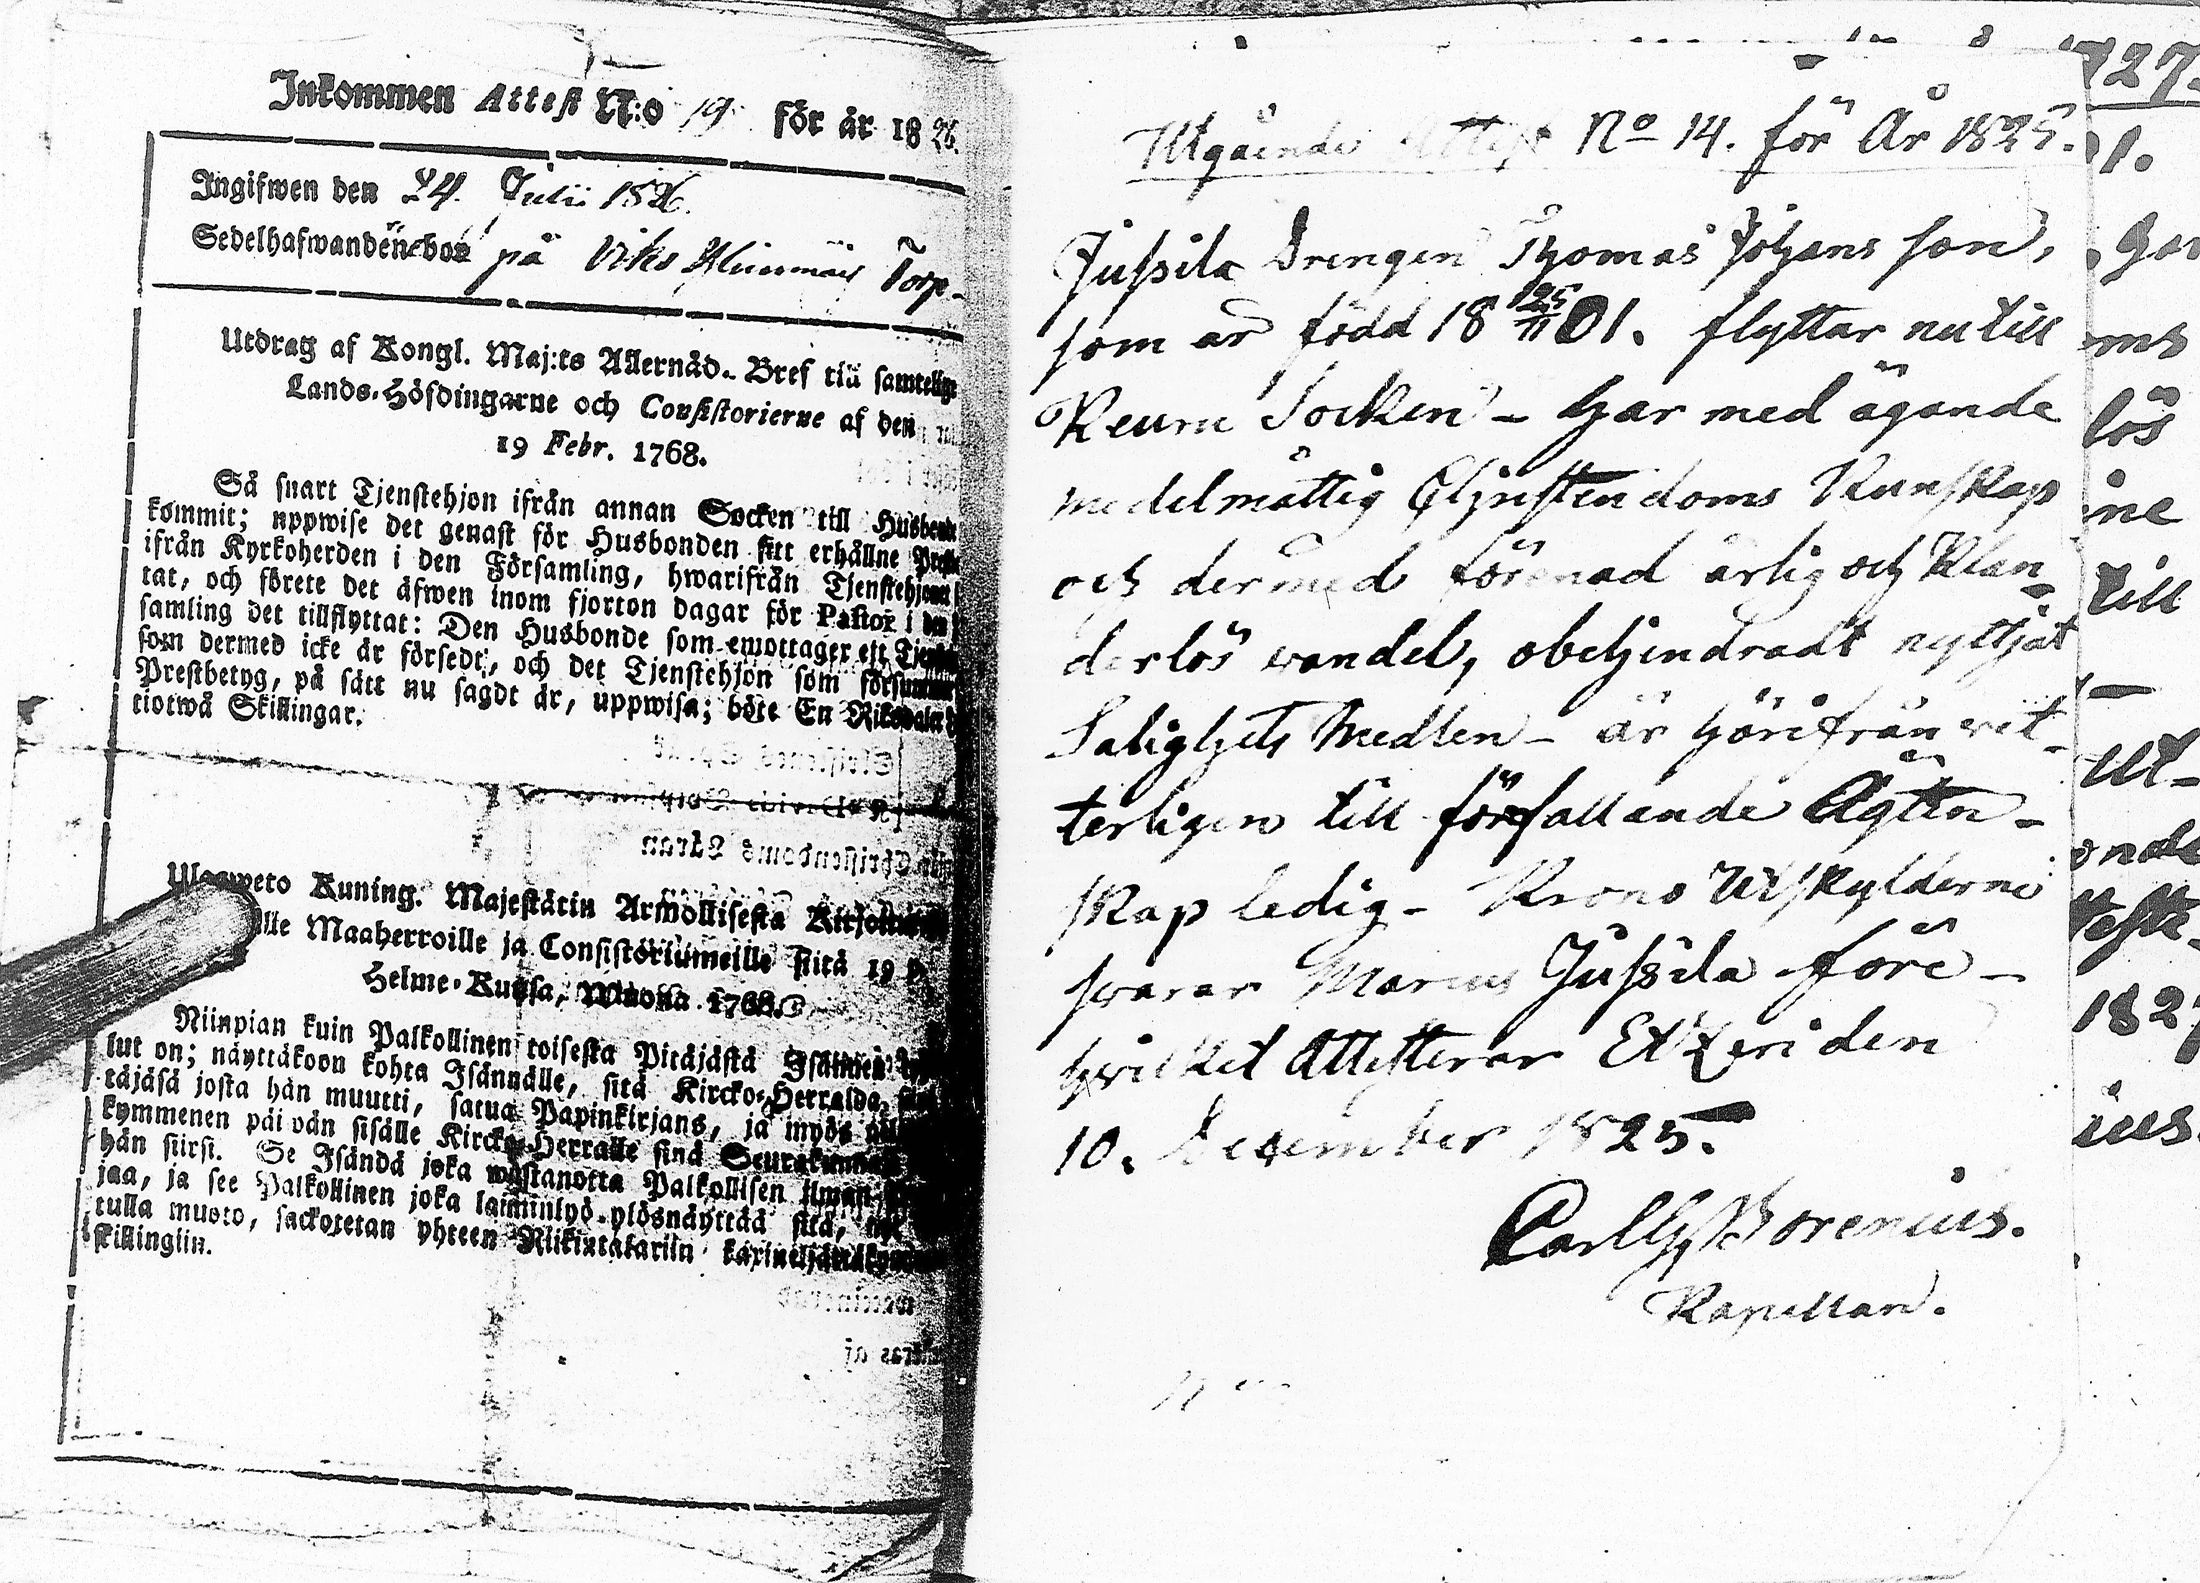 Inkommen Attest N:o 19 för år 1826.
Ingifwen den 24. Julii 1826.
Sedelhafwanden bor på Torp
Utdrag af Kongl. Maj:ts Allernåd. Bref till samtelige
Lands-Höfdingarne och Consistorierne af den
19 Febr. 1768.
Så snart Tjenstehjon ifrån annan Socken till Husbonde
kommit; uppwise det genast för Husbonden sitt erhållne
ifrån Kyrkoherden i den Församling, hwarifrån Tjenstehjonet
tat, och förete det äfwen inom fjorton dagar för Pastor i den
samling det tillflyttat: Den Husbonde som emottager ett
som dermed icke är försedt, och det Tjenstehjon som försummar
Prestbetyg, på sätt nu sagdt är, uppwisa; böte En Riksdaler
tiotwå Skillingar.
Kuning. Majestätin Armollisesta
Maaherroille ja Consistoriumeille siitä 19 p.
Helme-Kuusa, Wuonna 1768.
Niinpian kuin Palkollinen toisesta Pitäjästä Isännen
lut on; näyttäkoon kohta Isännälle, sitä Kircko-Herralda,
täjäsä josta hän muutti, satua Papinkirjans, ja myös
kymmenen päiwän sisälle Kircko-Herralle sinä
hän siirsi. Se Isändä joka wastanotta Palkollisen ilman
jaa, ja see Palkollinen joka laiminlyö ylösnäyttää sitä,
tulla muoto, sackotetan yhteen Riikintalariin
skillingiin.
Utgående Attest No 14. för År 1825.
Jussila Drengen Thomas Johans son,
som är född 18 25/11 01. flyttar nu till
Socken - har med ägande
medelmåttig Christendoms Kunskap
och dermed förenad ärlig och Klan=
derlös vandel, obehindradt nyttjat
Salighets Medlen - är härifrån vit-
terligen till förfallande Ägten-
skap ledig - Krono Utskylderne
svarar Jussila före -
hvilket Attesterar Etzeri den
10. December 1825.
Carl G. Borenius.
Kapellan.
127.
1.
lös
ine
till
ut-
1827
ius.